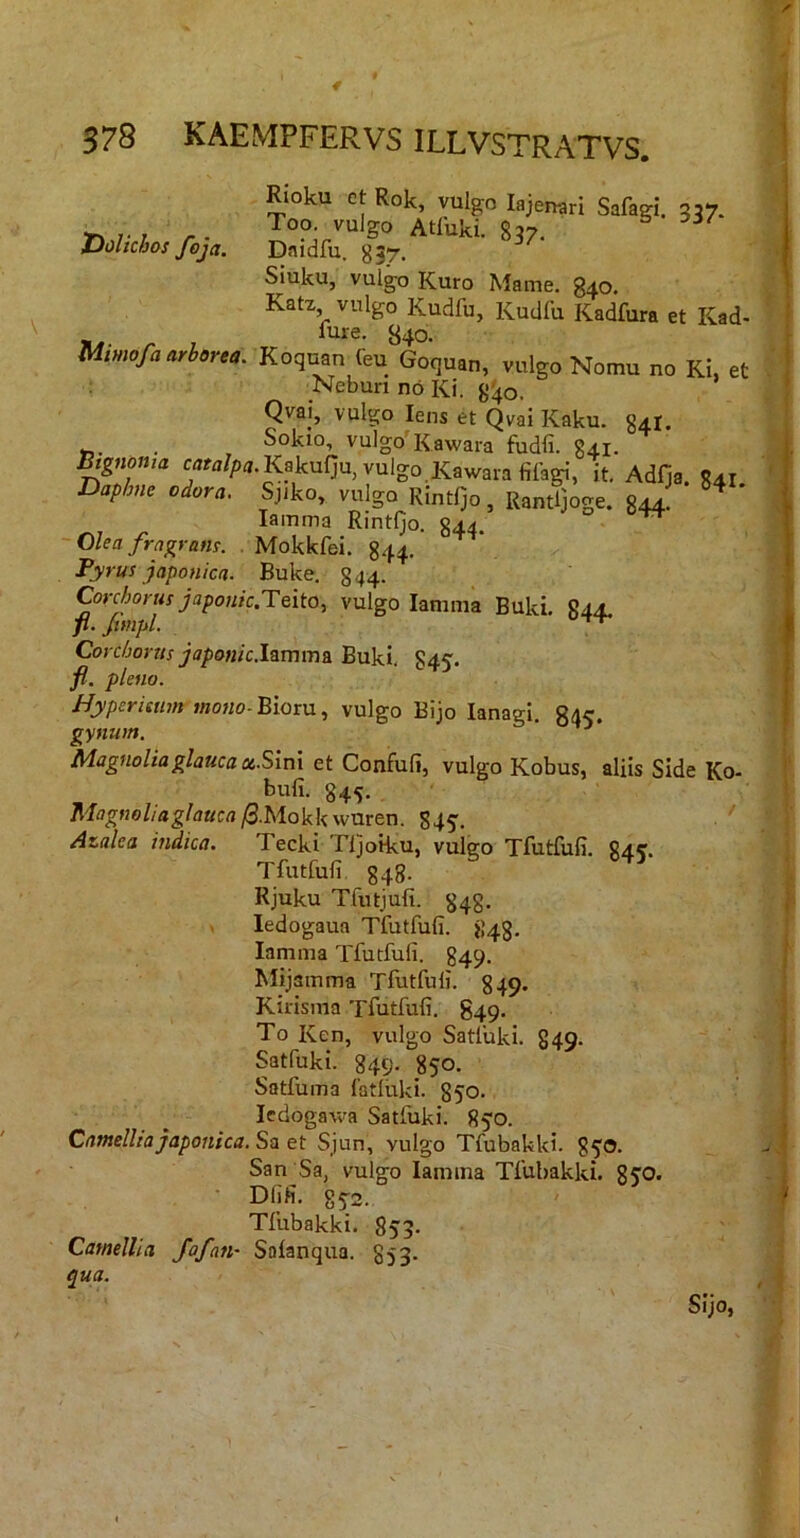 378 KAEMPFERVS ILLVSTRATVS.
Rioku et Rok, vulgo Iajenari Safagi. 337.
Too. vulgo Atſuki. 837.
Dolichos ſoja. Daidſu. 837.
Siuku, vulgo Kuro Mame. 840.
Katz, vulgo Kudſu, Kudſu Kadſura et Kad-
ſure. 840.
Mimoſa arborea. Koquan ſeu Goquan, vulgo Nomu no Ki, et
Neburi no Ki. 840.
Qvai, vulgo Iens et Qvai Kaku. 841.
Sokio, vulgo Kawara fudſi. 841.
Bignonia catalpa. Kakuſju, vulgo Kawara fiſagi, it. Adſja. 841.
Daphne odora. Sjiko, vulgo Rintſjo, Rantſjoge. 844.
Iamma Rintſjo. 844.
Olea fragrans. Mokkſei. 844.
Pyrus japonica. Buke. 844.
Corchorus japonic. Teito, vulgo Iamma Buki. 844.
fl. ſimpl.
Corchorus japonic. Iamma Buki. 845.
fl. pleno.
Hypericum mono- Bioru, vulgo Bijo Ianagi. 845.
gynum.
Magnolia glauca α. Sini et Confuſi, vulgo Kobus, aliis Side Ko-
buſi. 845.
Magnolia glauca β. Mokkwuren. 845.
Azalea indica. Tecki Tſjokku, vulgo Tſutſuſi. 845.
Tſutſuſi. 848.
Rjuku Tſutjuſi. 848.
Iedogaua Tſutſuſi. 848.
Iamma Tſutſuſi. 849.
Mijamma Tſutſuſi. 849.
Kirisma Tſutſuſi. 849.
To Ken, vulgo Satſuki. 849.
Satſuki. 849. 850.
Satſuma ſatſuki. 850.
Iedogawa Satſuki. 850.
Camellia japonica. Sa et Sjun, vulgo Tſubakki. 850.
San Sa, vulgo Iamma Tſubakki. 850.
Dſiſi. 852.
Tſubakki. 853.
Camellia ſaſan- Saſanqua. 853.
qua.
Sijo,